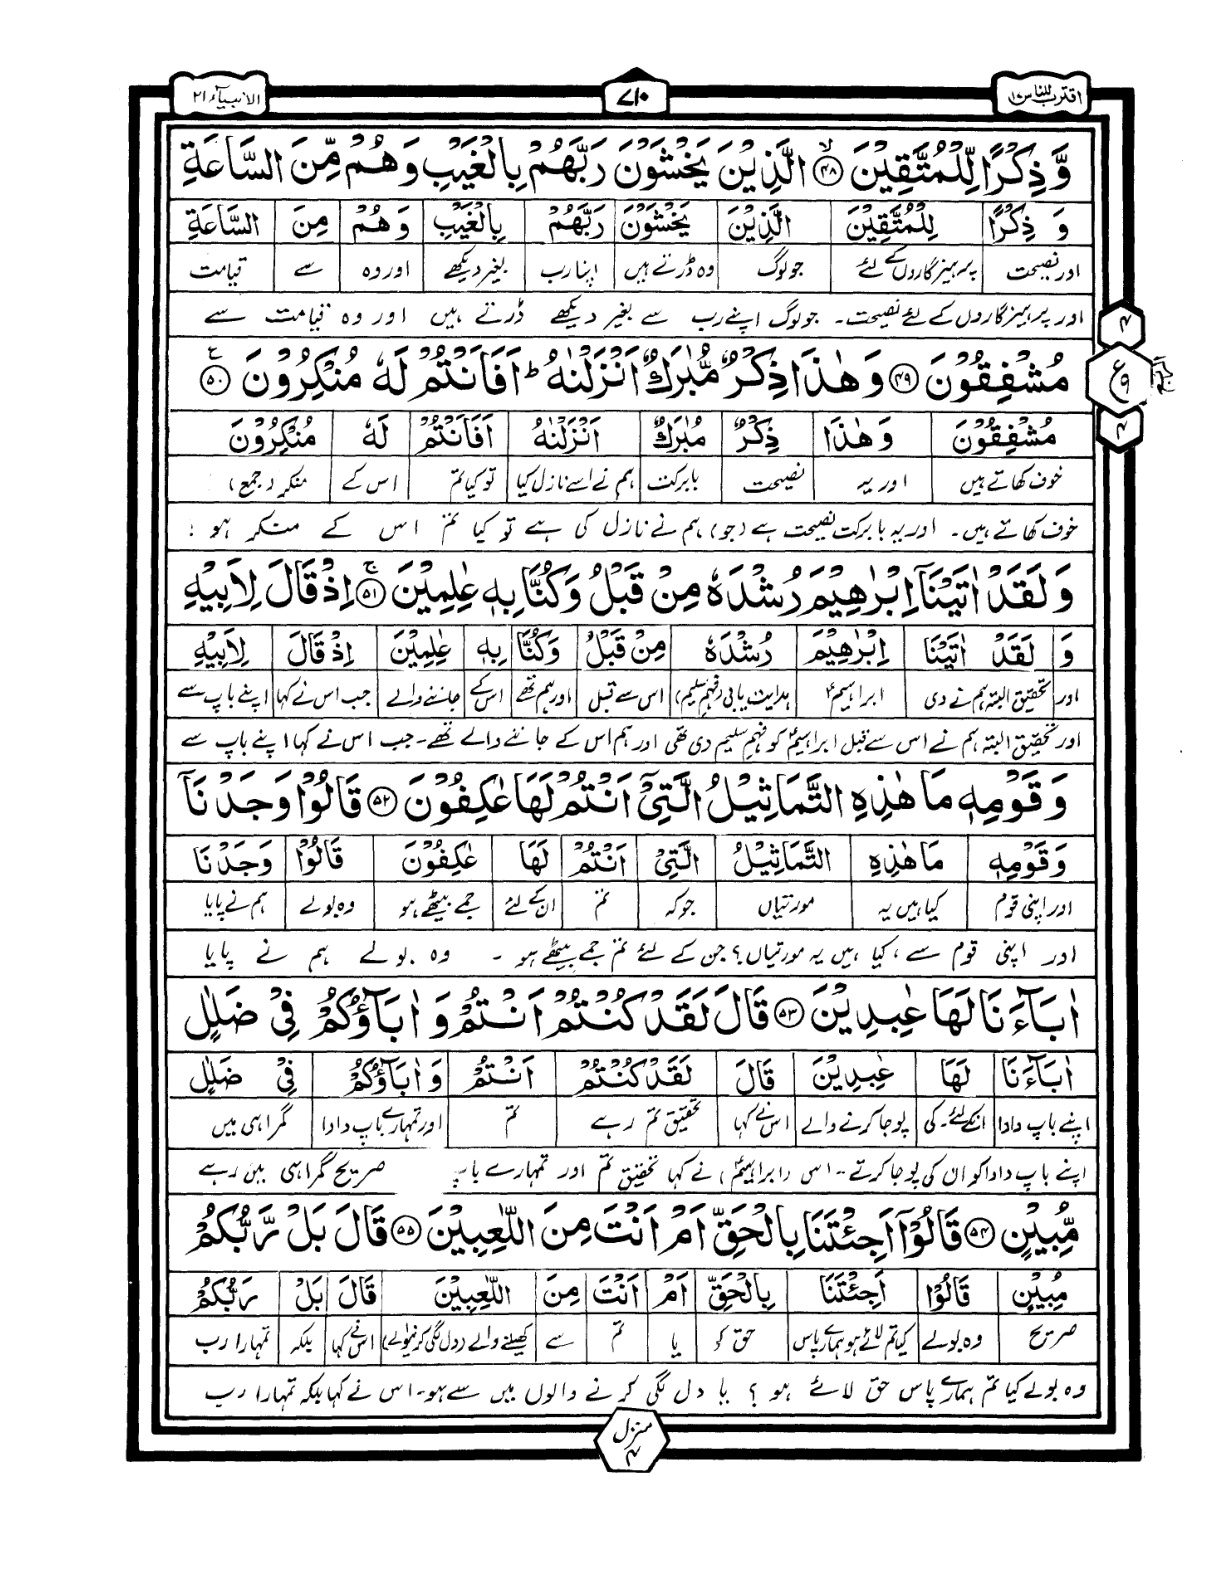 اقترب للناس ۱۷
۷۱۰
الانبیآء ۲۱
وَّ ذِكْرًا لِّلْمُتَّقِیْنَ ۝۴۸ۙ الَّذِیْنَ یَخْشَوْنَ رَبَّهُمْ بِالْغَیْبِ وَ هُمْ مِّنَ السَّاعَةِ
وَ ذِكْرًا لِلْمُتَّقِیْنَ الَّذِیْنَ یَخْشَوْنَ رَبَّهُمْ بِالْغَیْبِ وَ هُمْ مِنَ السَّاعَةِ
اور نصیحت پرہیزگاروں کے لئے جو لوگ وہ ڈرتے ہیں اپنا رب بغیر دیکھے اور وہ سے قیامت
اور پرہیزگاروں کے لئے نصیحت۔ جو لوگ اپنے رب سے بغیر دیکھے ڈرتے ہیں اور وہ قیامت سے
مُشْفِقُوْنَ ۝۴۹ وَ هٰذَا ذِكْرٌ مُّبٰرَكٌ اَنْزَلْنٰهُ ؕ اَفَاَنْتُمْ لَهٗ مُنْكِرُوْنَ ۝۵۰ۧ
۴
ع ۹
۴
مُشْفِقُوْنَ وَ هٰذَا ذِكْرٌ مُبٰرَكٌ اَنْزَلْنٰهُ اَفَاَنْتُمْ لَهٗ مُنْكِرُوْنَ
خوف کھاتے ہیں اور یہ نصیحت بابرکت ہم نے اسے نازل کیا تو کیا تم اس کے منکر (جمع)
خوف کھاتے ہیں۔ اور یہ بابرکت نصیحت ہے (جو) ہم نے نازل کی ہے تو کیا تم اس کے منکر ہو؛
وَ لَقَدْ اٰتَیْنَاۤ اِبْرٰهِیْمَ رُشْدَهٗ مِنْ قَبْلُ وَ كُنَّا بِهٖ عٰلِمِیْنَ ۝۵۱ۚ اِذْ قَالَ لِاَبِیْهِ
وَ لَقَدْ اٰتَیْنَا اِبْرٰهِیْمَ رُشْدَهٗ مِنْ قَبْلُ وَ كُنَّا بِهٖ عٰلِمِیْنَ اِذْ قَالَ لِاَبِیْهِ
اور تحقیق البتہ ہم نے دی ابراہیمؑ ہدایت یابی (فہم سلیم) اس سے قبل اور ہم تھے اس کے جاننے والے جب اس نے کہا اپنے باپ سے
اور تحقیق البتہ ہم نے اس سے قبل ابراہیمؑ کو فہم سلیم دی تھی اور ہم اس کے جاننے والے تھے۔ جب اس نے کہا اپنے باپ سے
وَ قَوْمِهٖ مَا هٰذِهِ التَّمَاثِیْلُ الَّتِیْۤ اَنْتُمْ لَهَا عٰكِفُوْنَ ۝۵۲ قَالُوْا وَجَدْنَاۤ
وَ قَوْمِهٖ مَا هٰذِهِ التَّمَاثِیْلُ الَّتِیْ اَنْتُمْ لَهَا عٰكِفُوْنَ قَالُوْا وَجَدْنَا
اور اپنی قوم کیا ہیں یہ مورتیاں جو کہ تم ان کے لئے جمے بیٹھے ہو وہ بولے ہم نے پایا
اور اپنی قوم سے، کیا ہیں یہ مورتیاں؟ جن کے لئے تم جمے بیٹھے ہو۔ وہ بولے ہم نے پایا
اٰبَآءَنَا لَهَا عٰبِدِیْنَ ۝۵۳ قَالَ لَقَدْ كُنْتُمْ اَنْتُمْ وَ اٰبَآؤُكُمْ فِیْ ضَلٰلٍ
اٰبَآءَنَا لَهَا عٰبِدِیْنَ قَالَ لَقَدْ كُنْتُمْ اَنْتُمْ وَ اٰبَآؤُكُمْ فِیْ ضَلٰلٍ
اپنے باپ دادا انکے لئے۔ کی پوجا کرنے والے اس نے کہا تحقیق تم رہے تم اور تمہارے باپ دادا گمراہی میں
اپنے باپ دادا کو ان کی پوجا کرتے۔ اس (ابراہیمؑ) نے کہا تحقیق تم اور تمہارے باپ صریح گمراہی میں رہے
مُّبِیْنٍ ۝۵۴ قَالُوْۤا اَجِئْتَنَا بِالْحَقِّ اَمْ اَنْتَ مِنَ اللّٰعِبِیْنَ ۝۵۵ قَالَ بَلْ رَّبُّكُمْ
مُبِیْنٍ قَالُوْا اَجِئْتَنَا بِالْحَقِّ اَمْ اَنْتَ مِنَ اللّٰعِبِیْنَ قَالَ بَلْ رَبُّكُمْ
صریح وہ بولے کیا تم لائے ہو ہمارے پاس حق کو یا تم سے کھیلنے والے (دل لگی کرنیوالے) اس نے کہا بلکہ تمہارا رب
وہ بولے کیا تم ہمارے پاس حق لائے ہو؟ یا دل لگی کرنے والوں میں سے ہو۔ اس نے کہا بلکہ تمہارا رب
منزل ۴